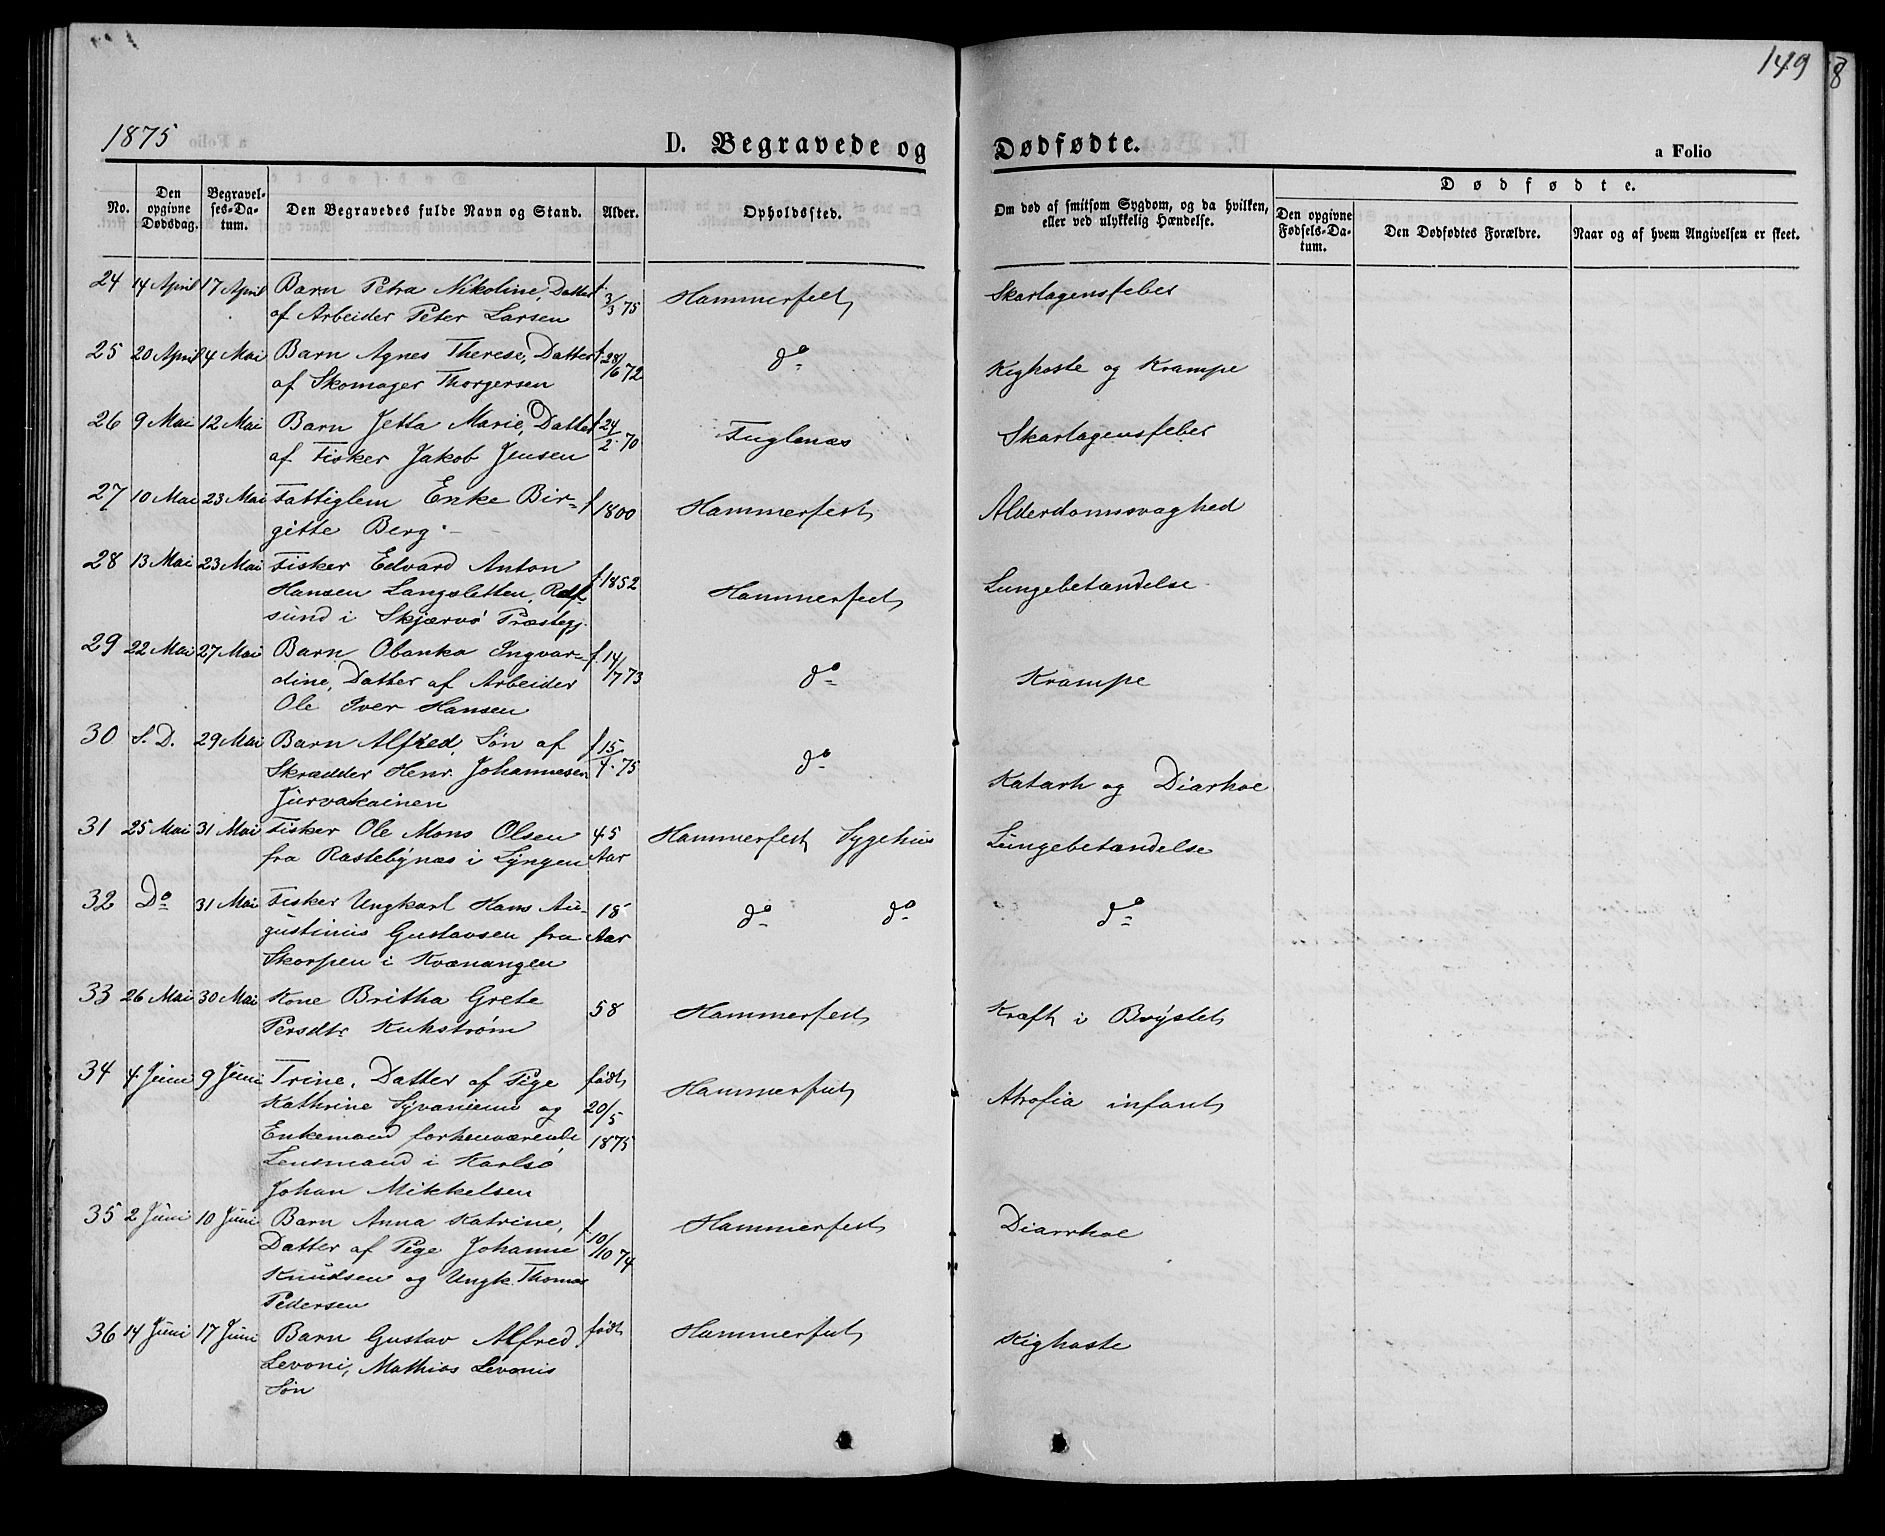 149
8
1875
D. Begravede og Dødfødte.
a Folio
No.
Den opgivne Dødsdag.
Begravelses-Datum.
Den Begravedes fulde Navn og Stand.
Alder.
Opholdssted.
Om død af smitsom Sygdom, og da hvilken, eller ved ulykkelig Hændelse.
Dødfødte.
Den opgivne Fødsels-Datum.
Den Dødfødtes Forældre.
Naar og af hvem Angivelsen er skeet.
24 14 April 17 April Barn Petra Nikoline, Datter f. 3/3 75 Hammerfest Skarlagensfeber
af Arbeider Peter Larsen
25 20 April 4 Mai Barn Agnes Therese, Datter f. 28/6 72 do Kighoste og Krampe
af Skomager Thorgersen
26 9 Mai 12 Mai Barn Jetta Marie, Datter f. 24/2 70 Fuglenæs Skarlagensfeber
af Fisker Jakob Jensen
27 10 Mai 23 Mai Fattiglem Enke Bir- f. 1800 Hammerfest Alderdomssvaghed
gitte Berg.
28 13 Mai 23 Mai Fisker Edvard Anton f. 1852 Hammerfest Lungebetændelse
Hansen Langsletten, Rafs-
sund i Skjærvø Præstegj.
29 22 Mai 27 Mai Barn Obanka Ingvar- f. 14/7 73 do Krampe
dine, Datter af Arbeider
Ole Iver Hansen
30 S. D. 29 Mai Barn Alfred, Søn af f. 15/4 75 do Katarh og Diarhoe
Skrædder Henr. Johannesen
Jurvakainen
31 25 Mai 31 Mai Fisker Ole Mons Olsen 45 Aar Hammerfest Sygehus Lungebetændelse
fra Rastebynæs i Lyngen
32 Do 31 Mai Fisker Ungkarl Hans Au- 18 Aar do do do
gustinus Gustavsen fra
Skorpen i Kvænangen
33 26 Mai 30 Mai Kone Britha Grete 58 Hammerfest Kræft i Brystet
Persdtr Kuhstrøm
34 4 Juni 9 Juni Trine, Datter af Pige født 20/5 1875 Hammerfest Atrofia infant
Kathrine og
Enkemand forhenværende
Lensmand i Karlsø
Johan Mikkelsen
35 2 Juni 10 Juni Barn Anna Katrine, f. 10/10 74 Hammerfest Diarrhoe
Datter af Pige Johanne
Knudsen og Ungk. Thomas
Pedersen
36 14 Juni 17 Juni Barn Gustav Alfred født Hammerfest Kighoste
Levoni, Mathias Levonis
Søn